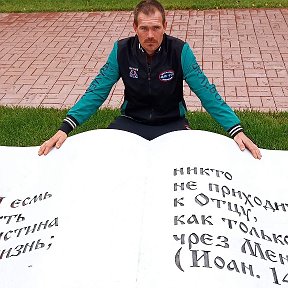 есмь
истина
жизнь;
никто
не приходит
к Отцу,
как только
чрез Мен
(Иоан. 14